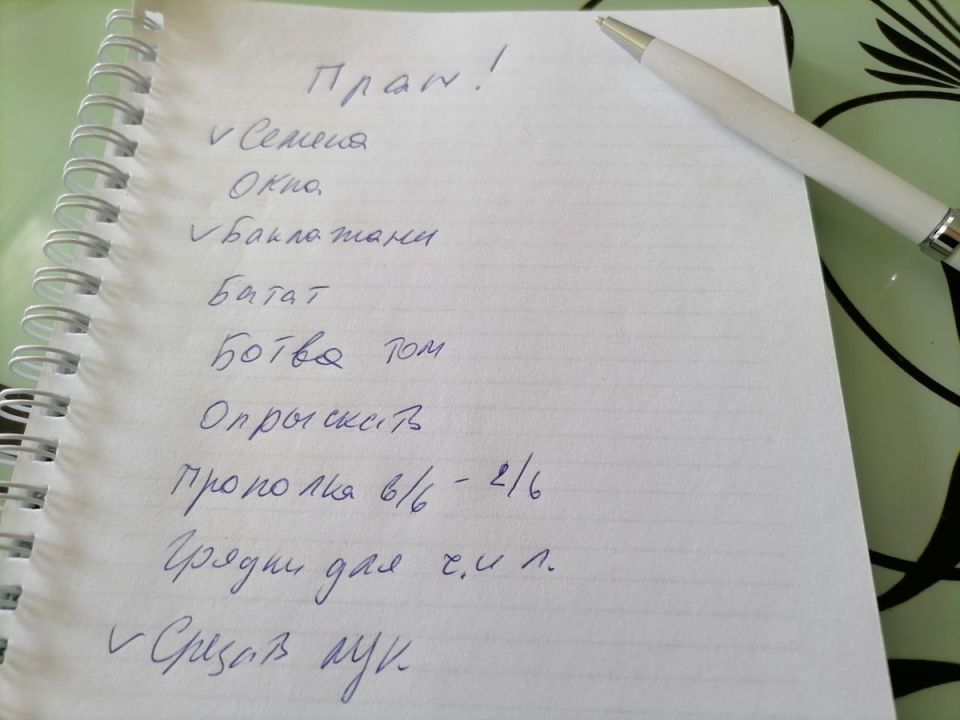 План!
✓ Семена
Окна
✓ Баклажани
Батат
Ботва том
Опрыскать
Прополка в/б - 2/б
Грядки для ч. и л.
✓ Срезать лук